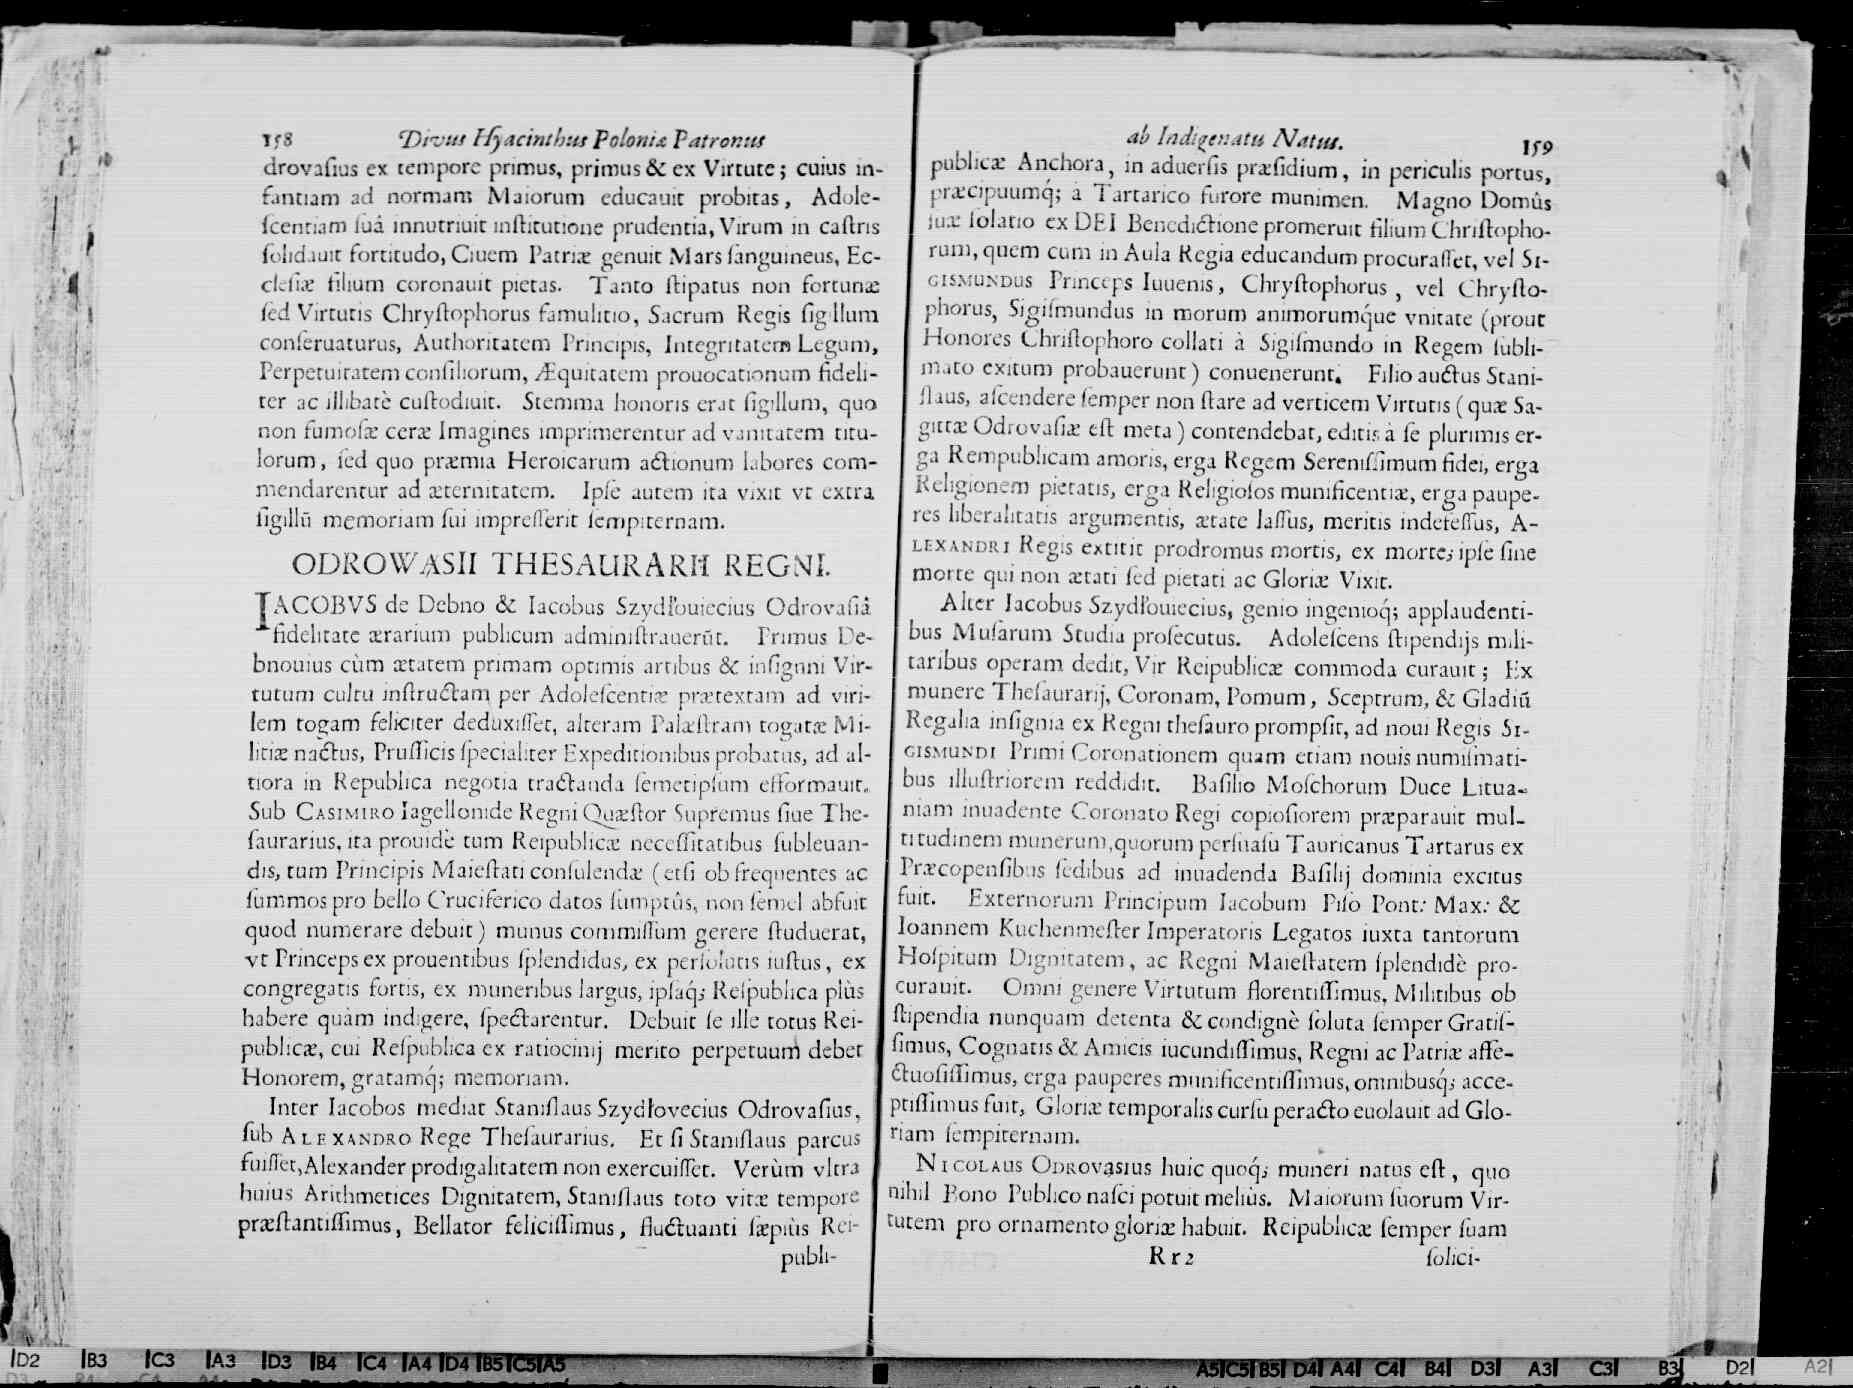 158 Divus Hyacinthus Poloniæ Patronus
drovaſius ex tempore primus, primus & ex Virtute; cuius in-
fantiam ad normam Maiorum educauit probitas, Adole-
ſcentiam ſuâ innutriuit inſtitutione prudentia, Virum in caſtris
ſolidauit fortitudo, Ciuem Patriæ genuit Mars ſanguineus, Ec-
cleſiæ filium coronauit pietas. Tanto ſtipatus non fortunæ
ſed Virtutis Chryſtophorus famulitio, Sacrum Regis ſigillum
conſeruaturus, Authoritatem Principis, Integritatem Legum,
Perpetuitatem conſiliorum, Æquitatem prouocationum fideli-
ter ac illibatè cuſtodiuit. Stemma honoris erat ſigillum, quo
non fumoſæ ceræ Imagines imprimerentur ad vanitatem titu-
lorum, ſed quo præmia Heroicarum actionum labores com-
mendarentur ad æternitatem. Ipſe autem ita vixit vt extra
ſigillũ memoriam ſui impreſſerit ſempiternam.
ODROWASII THESAURARII REGNI.
IACOBVS de Debno & Iacobus Szydłouiecius Odrovaſiâ
fidelitate ærarium publicum adminiſtrauerũt. Primus De-
bnouius cùm ætatem primam optimis artibus & inſignni Vir-
tutum cultu inſtructam per Adoleſcentiæ prætextam ad viri-
lem togam feliciter deduxiſſet, alteram Palæſtram togatæ Mi-
litiæ nactus, Pruſſicis ſpecialiter Expeditionibus probatus, ad al-
tiora in Republica negotia tractanda ſemetipſum efformauit.
Sub CASIMIRO Iagellonide Regni Quæſtor Supremus ſiue The-
ſaurarius, ita prouidè tum Reipublicæ neceſſitatibus ſubleuan-
dis, tum Principis Maieſtati conſulendæ (etſi ob frequentes ac
ſummos pro bello Cruciferico datos ſumptûs, non ſemel abfuit
quod numerare debuit) munus commiſſum gerere ſtuduerat,
vt Princeps ex prouentibus ſplendidus, ex perſolutis iuſtus, ex
congregatis fortis, ex muneribus largus, ipſaq́; Reſpublica plùs
habere quàm indigere, ſpectarentur. Debuit ſe ille totus Rei-
publicæ, cui Reſpublica ex ratiocinij merito perpetuum debet
Honorem, gratamq́; memoriam.
Inter Iacobos mediat Staniſlaus Szydłovecius Odrovaſius,
ſub ALEXANDRO Rege Theſaurarius. Et ſi Staniſlaus parcus
fuiſſet, Alexander prodigalitatem non exercuiſſet. Verùm vltra
huius Arithmetices Dignitatem, Staniſlaus toto vitæ tempore
præſtantiſſimus, Bellator feliciſſimus, fluctuanti ſæpiùs Rei-
publi-
ab Indigenatu Natus. 159
publicæ Anchora, in aduerſis præſidium, in periculis portus,
præcipuumq́; à Tartarico furore munimen. Magno Domûs
ſuæ ſolatio ex DEI Benedictione promeruit filium Chriſtopho-
rum, quem cum in Aula Regia educandum procuraſſet, vel SI-
GISMUNDUS Princeps Iuuenis, Chryſtophorus, vel Chryſto-
phorus, Sigiſmundus in morum animorumq́ue vnitate (prout
Honores Chriſtophoro collati à Sigiſmundo in Regem ſubli-
mato exitum probauerunt) conuenerunt. Filio auctus Stani-
ſlaus, aſcendere ſemper non ſtare ad verticem Virtutis (quæ Sa-
gittæ Odrovaſiæ eſt meta) contendebat, editis à ſe plurimis er-
ga Rempublicam amoris, erga Regem Sereniſſimum fidei, erga
Religionem pietatis, erga Religioſos munificentiæ, erga paupe-
res liberalitatis argumentis, ætate laſſus, meritis indefeſſus, A-
LEXANDRI Regis extitit prodromus mortis, ex morte; ipſe ſine
morte qui non ætati ſed pietati ac Gloriæ Vixit.
Alter Iacobus Szydłouiecius, genio ingenioq́; applaudenti-
bus Muſarum Studia proſecutus. Adoleſcens ſtipendijs mili-
taribus operam dedit, Vir Reipublicæ commoda curauit; Ex
munere Theſaurarij, Coronam, Pomum, Sceptrum, & Gladiũ
Regalia inſignia ex Regni theſauro prompſit, ad noui Regis SI-
GISMUNDI Primi Coronationem quam etiam nouis numiſmati-
bus illuſtriorem reddidit. Baſilio Moſchorum Duce Litua-
niam inuadente Coronato Regi copioſiorem præparauit mul-
titudinem munerum, quorum perſuaſu Tauricanus Tartarus ex
Præcopenſibus ſedibus ad inuadenda Baſilij dominia excitus
fuit. Externorum Principum Iacobum Piſo Pont: Max: &
Ioannem Kuchenmeſter Imperatoris Legatos iuxta tantorum
Hoſpitum Dignitatem, ac Regni Maieſtatem ſplendidè pro-
curauit. Omni genere Virtutum florentiſſimus, Militibus ob
ſtipendia nunquam detenta & condignè ſoluta ſemper Gratiſ-
ſimus, Cognatis & Amicis iucundiſſimus, Regni ac Patriæ affe-
ctuoſiſſimus, erga pauperes munificentiſſimus, omnibusq́; acce-
ptiſſimus fuit, Gloriæ temporalis curſu peracto euolauit ad Glo-
riam ſempiternam.
NICOLAUS ODROVASIUS huic quoq́; muneri natus eſt, quo
nihil Bono Publico naſci potuit meliùs. Maiorum ſuorum Vir-
tutem pro ornamento gloriæ habuit. Reipublicæ ſemper ſuam
R r 2 ſolici-
D2 B3 C3 A3 D3 B4 C4 A4 D4 B5 C5 A5 A5 C5 B5 D4 A4 C4 B4 D3 A3 C3 B3 D2 A2